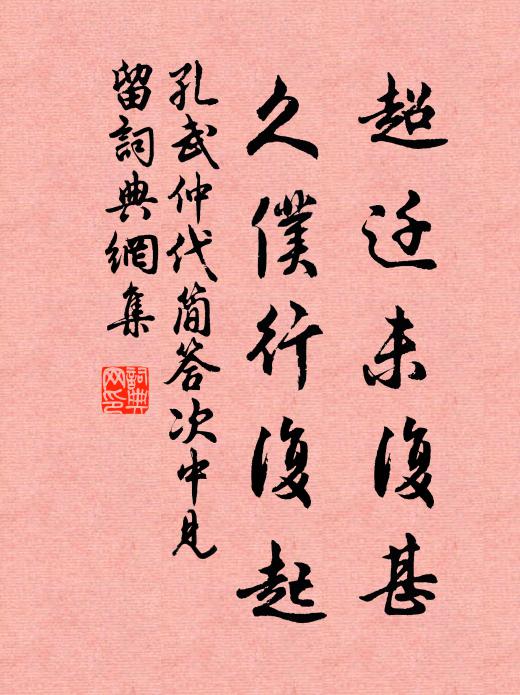 超迁未復甚
久僕行復起
孔武仲代简答次中見
留詞典網集
詞典
网印